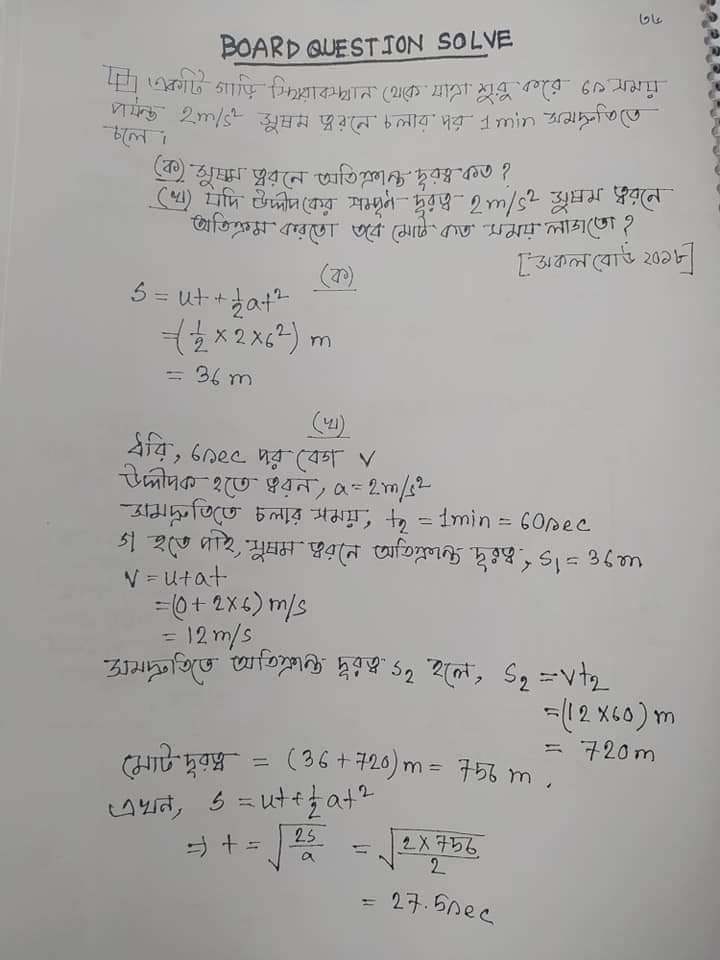 ৩৮
BOARD QUESTION SOLVE
একটি গাড়ি স্থিরাবস্থান থেকে যাত্রা শুরু করে 6s সময়
পর্যন্ত 2m/s² সুষম ত্বরনে চলার পর 1 min সমদ্রুতিতে
চলে।
(ক) সুষম ত্বরনে অতিক্রান্ত দূরত্ব কত?
(খ) যদি উদ্দীপকের সম্পূর্ন দূরত্ব 2m/s² সুষম ত্বরনে
অতিক্রম করতো তবে মোট কত সময় লাগতো?
[সকল বোর্ড ২০১৮]
(ক)
S = ut + ½at²
=(½ × 2 × 6²) m
= 36 m
(খ)
ধরি, 6sec পর বেগ v
উদ্দীপক হতে ত্বরন, a = 2m/s²
সমদ্রুতিতে চলার সময়, t₂ = 1min = 60sec
গ হতে পাই, সুষম ত্বরনে অতিক্রান্ত দূরত্ব, S₁ = 36m
V = u+at
=(0 + 2×6) m/s
= 12 m/s
সমদ্রুতিতে অতিক্রান্ত দূরত্ব S₂ হলে, S₂ = Vt₂
=(12 ×60) m
= 720 m
মোট দূরত্ব = (36 + 720) m = 756 m.
এখন, S = ut + ½at²
⇒ t = √(2s/a) = √(2 × 756/2)
= 27.5sec